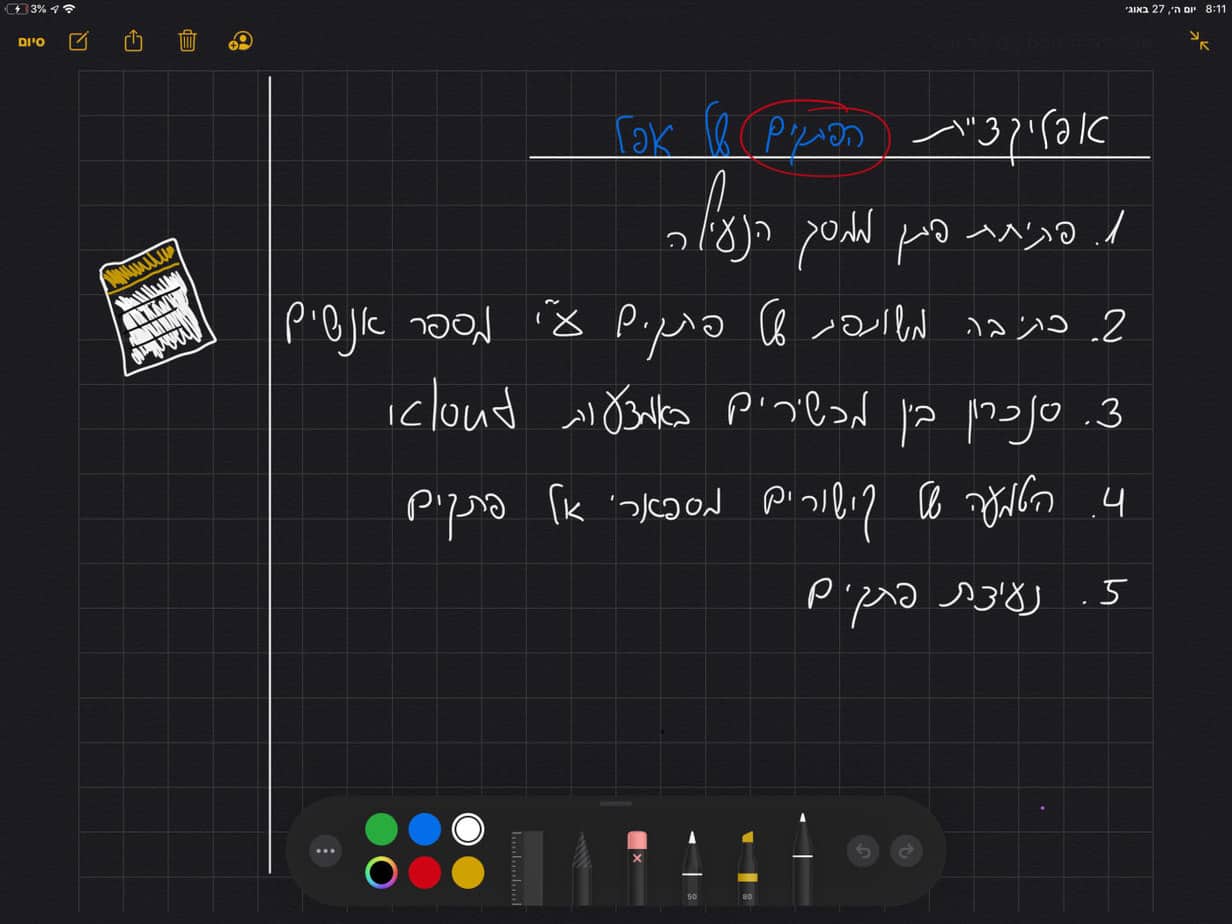 8:11 יום ה׳, 27 באוג׳ 3%
סיום
אפליקצ״ת הפתקים של אפל
1. פתיחת פתק ממסך הנעילה
2. כתיבה משותפת של פתקים ע״י מספר אנשים
3. סנכרון בין מכשירים באמצעות
4. הטמעה של קישורים מספארי אל פתקים
5. נעיצת פתקים
50 80